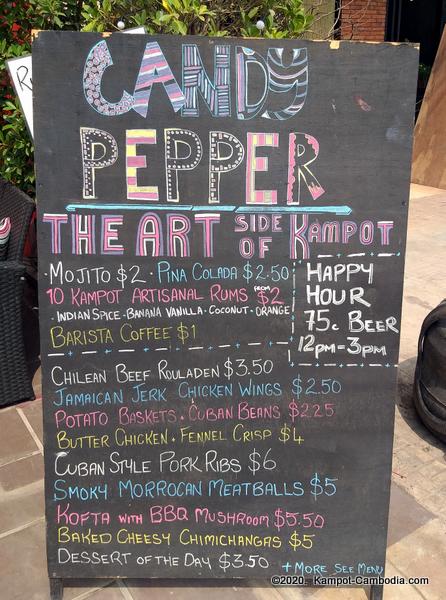 Ru
CANDY
PEPPER
THE ART SIDE OF KAMPOT
MOJITO $2 · PINA COLADA $2.50
10 KAMPOT ARTISANAL RUMS FROM $2
· INDIAN SPICE · BANANA VANILLA · COCONUT · ORANGE
BARISTA COFFEE $1
HAPPY
HOUR
75c BEER
12PM-3PM
CHILEAN BEEF ROULADEN $3.50
JAMAICAN JERK CHICKEN WINGS $2.50
POTATO BASKETS · CUBAN BEANS $2.25
BUTTER CHICKEN · FENNEL CRISP $4
CUBAN STYLE PORK RIBS $6
SMOKY MORROCAN MEATBALLS $5
KOFTA WITH BBQ MUSHROOM $5.50
BAKED CHEESY CHIMICHANGAS $5
DESSERT OF THE DAY $3.50
+ MORE SEE MENU
©2020. Kampot-Cambodia.com